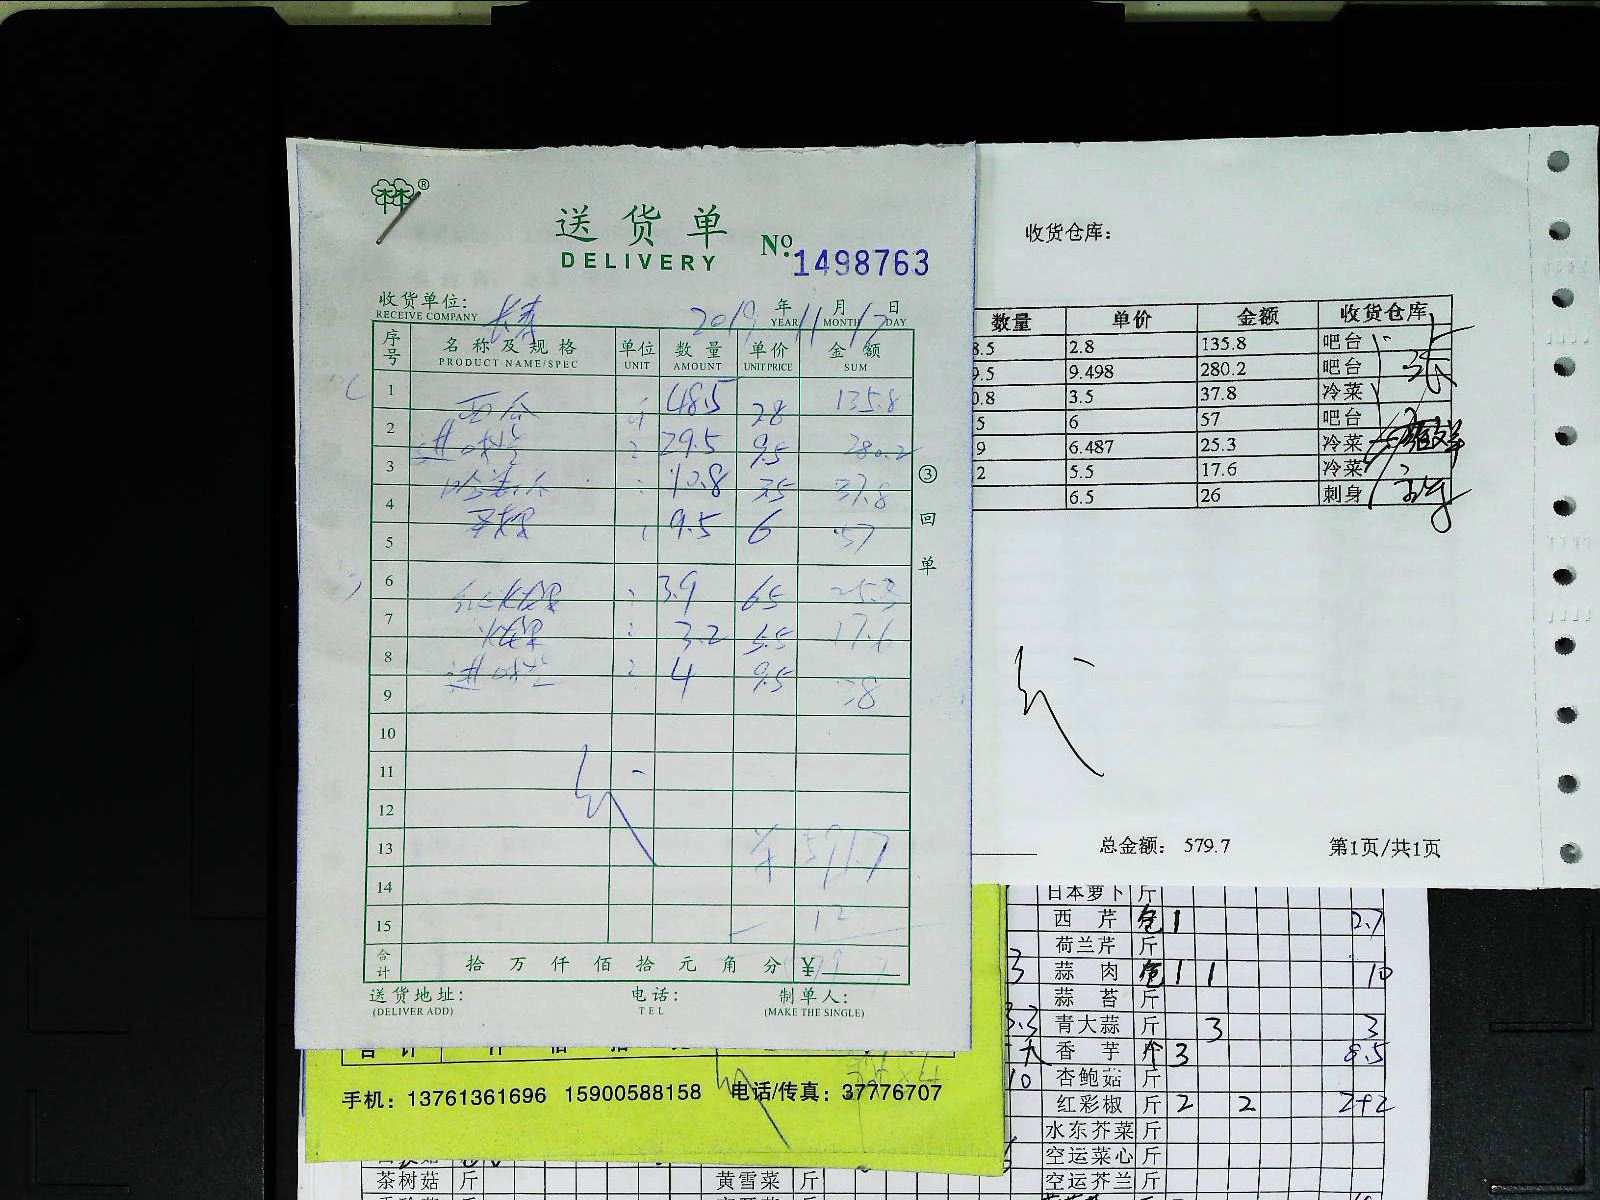 ®
送货单
DELIVERY
No. 1498763
收货单位: 长寿
RECEIVE COMPANY
2019 年 11 月 17 日
YEAR MONTH DAY
序号 名称及规格 单位 数量 单价 金额
PRODUCT NAME/SPEC UNIT AMOUNT UNIT PRICE SUM
1 西瓜 48.5 28 135.8
2 进口 29.5 9.5 280.2
3 10.8 35 37.8
4 9.5 6 57
5
6 3.9 65 25.3
7 火龙果 3.2 5.5 17.6
8 进口 4 9.5 38
9
10
11
12
13 591.7
14
15 12
合计 拾万仟佰拾元角分 ¥
③回单
送货地址: 电话: 制单人:
(DELIVER ADD) TEL (MAKE THE SINGLE)
收货仓库:
数量 单价 金额 收货仓库
8.5 2.8 135.8 吧台
9.5 9.498 280.2 吧台
0.8 3.5 37.8 冷菜
5 6 57 吧台
9 6.487 25.3 冷菜
2 5.5 17.6 冷菜
6.5 26 刺身
总金额: 579.7 第1页/共1页
手机: 13761361696 15900588158 电话/传真: 37776707
日本萝卜 斤
西芹 1 2.7
荷兰芹 斤
蒜肉 1 1 10
蒜苔 斤
青大蒜 斤 3 3
香芋 个 3 8.5
杏鲍菇 斤
红彩椒 斤 2 2 2+2
水东芥菜 斤
空运菜心 斤
空运芥兰 斤
茶树菇 斤
黄雪菜 斤